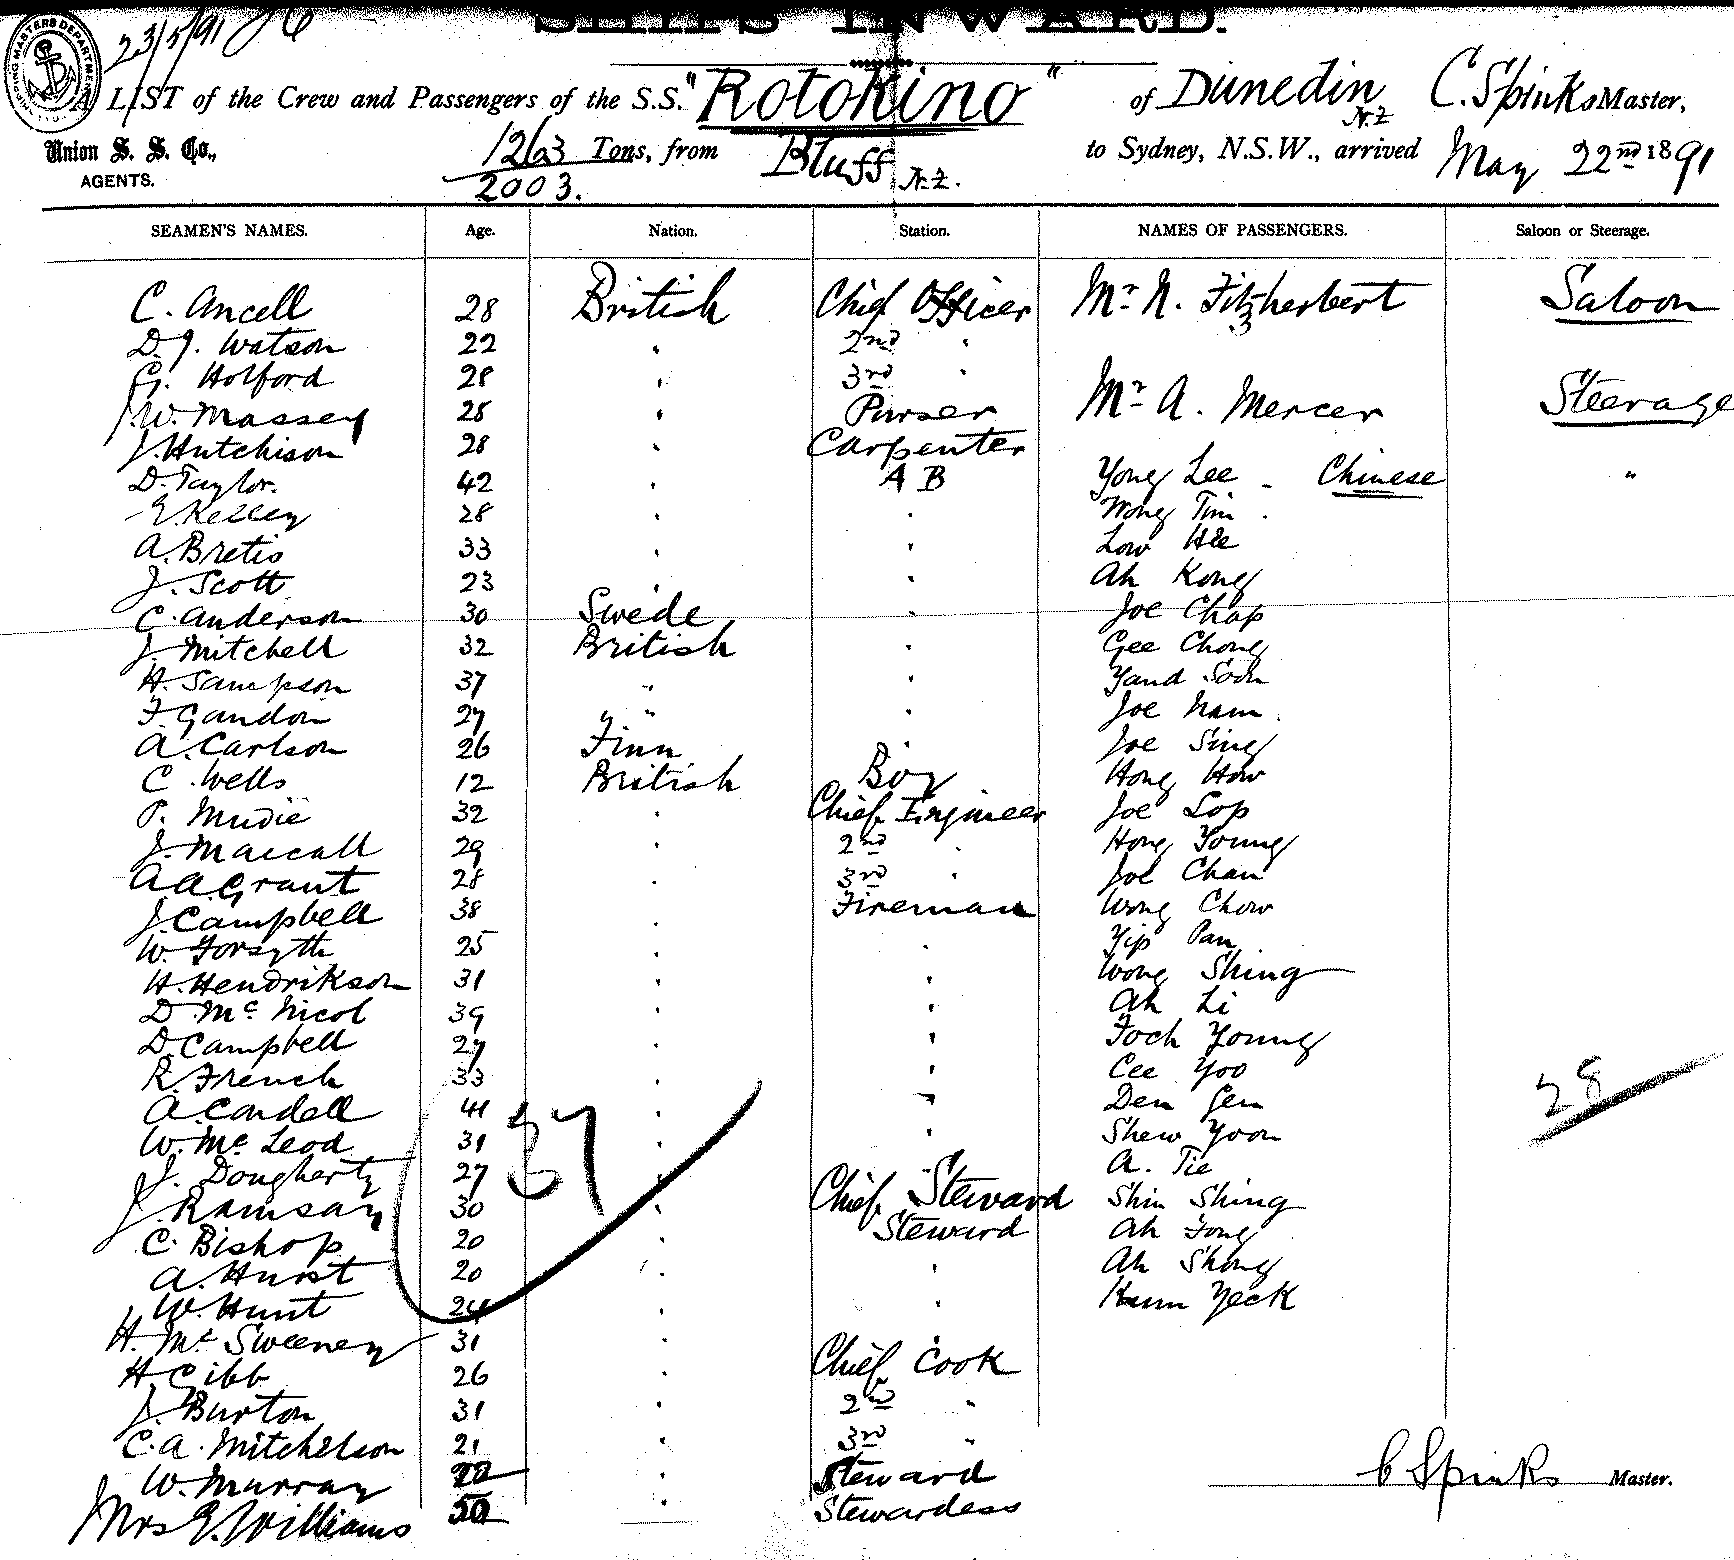 23/5/91
SHIPS INWARD.
SHIPPING MASTERS DEPARTMENT
A LIST of the Crew and Passengers of the S.S. "Rotokino" of Dunedin N.Z C. Spinks Master,
Union S. S. Co., AGENTS. 1263 Tons, from Bluff N.Z. to Sydney, N.S.W., arrived May 22nd 1891
2003.
SEAMEN'S NAMES. Age. Nation. Station. NAMES OF PASSENGERS. Saloon or Steerage.
C. Ancell 28 British Chief Officer Mr N. Fitzherbert Saloon
D. J. Watson 22 " 2nd "
G. Holford 28 " 3rd "
J. W. Massey 28 " Purser Mr A. Mercer Steerage
J. Hutchison 28 " Carpenter
D. Taylor. 42 " A B Yong Lee - Chinese "
E. Kelley 28 " " Wong Tim
A. Bretis 33 " " Low Hee
J. Scott 23 " " Ah Kong
C. Anderson 30 Swede " Joe Chap
J. Mitchell 32 British " Gee Chong
H. Sampson 37 " " Yand Soon
F. Gandon 27 " " Joe Nam
A. Carlson 26 Finn " Joe Sing
C. Wells 12 British Boy Hong How
P. Mudie 32 " Chief Engineer Joe Lop
J. Maccall 29 " 2nd " Hong Young
A A Grant 28 " 3rd " Joe Chan
J. Campbell 38 " Fireman Wong Chow
W. Forsyth 25 " " Yip Pan
H. Hendrikson 31 " " Wong Shing
D. McNicol 39 " " Ah Li
D. Campbell 27 " " Foch Young
R. French 33 " " Cee Yoo
A. Condell 41 " " Den Gen
W. McLeod 31 " " Shew Yoon
J. Dougherty 27 " " A. Tie
J. Ramsay 30 " Chief Steward Shin Shing
C. Bishop 20 " Steward Ah Fong
A. Hurst 20 " " Ah Shong
W. Hunt 24 " " Kum Yeck
H. McSweeney 31 "
H Gibb 26 " Chief Cook
J. Burton 31 " 2nd "
C. A. Mitchelson 21 " 3rd "
W. Murray " Steward
Mrs E. Williams 50 " Stewardess
37
28
C Spinks Master.